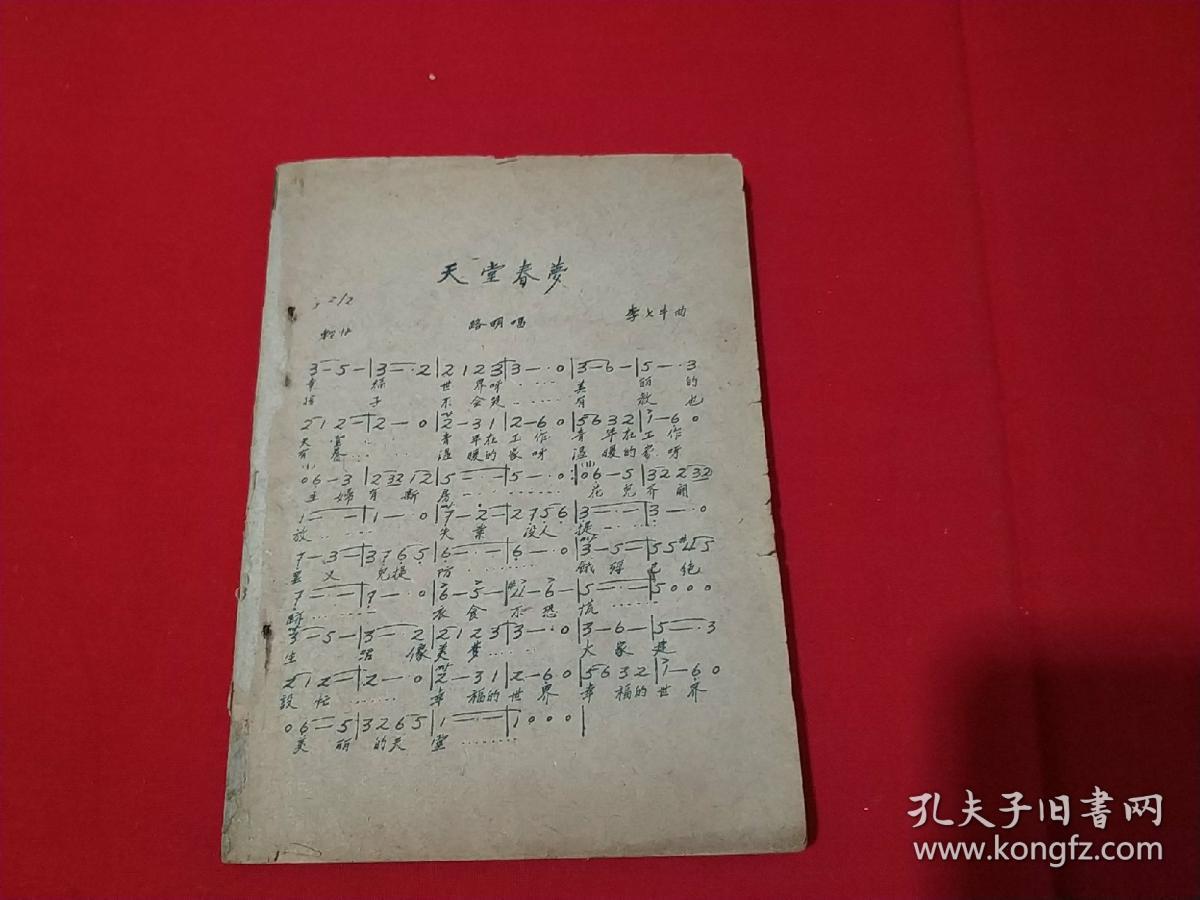 天堂春夢
2/2
路明唱
李七牛曲
3-5-|3-·2|2123|3-·0|3-6-|5-·3
幸 福 世界呀······ 美 丽 的
孩 子 不会哭······ 有 教 也
212-|2-·0|2-31|2-60|5632|1-60
天堂 ···· 青年在工作 青年在工作
有養······ 温暖的家呀 温暖的家呀
06-3|23212|5-·-|5-·0:|06-5|32232
主婦有新房············ 花兒齐開
1-·-|1-·0|7-2-|2756|3-·-|3-·0
放······ 失業 没人提······
7-3-|3765|6-·-|6-·0|3-5-|55#45
兒提防······ 餓殍已绝
7-·-|7-·0|6-5-|#4-6-|5-·-|5000
跡······ 衣食不恐慌······
3-5-|3-·2|2123|3-·0|3-6-|5-·3
生活像美夢······ 大家建
212-|2-·0|2-31|2-60|5632|1-60
設忙······ 幸福的世界 幸福的世界
06-5|3265|1-·-|1000|
美丽的天堂······
孔夫子旧书网
www.kongfz.com